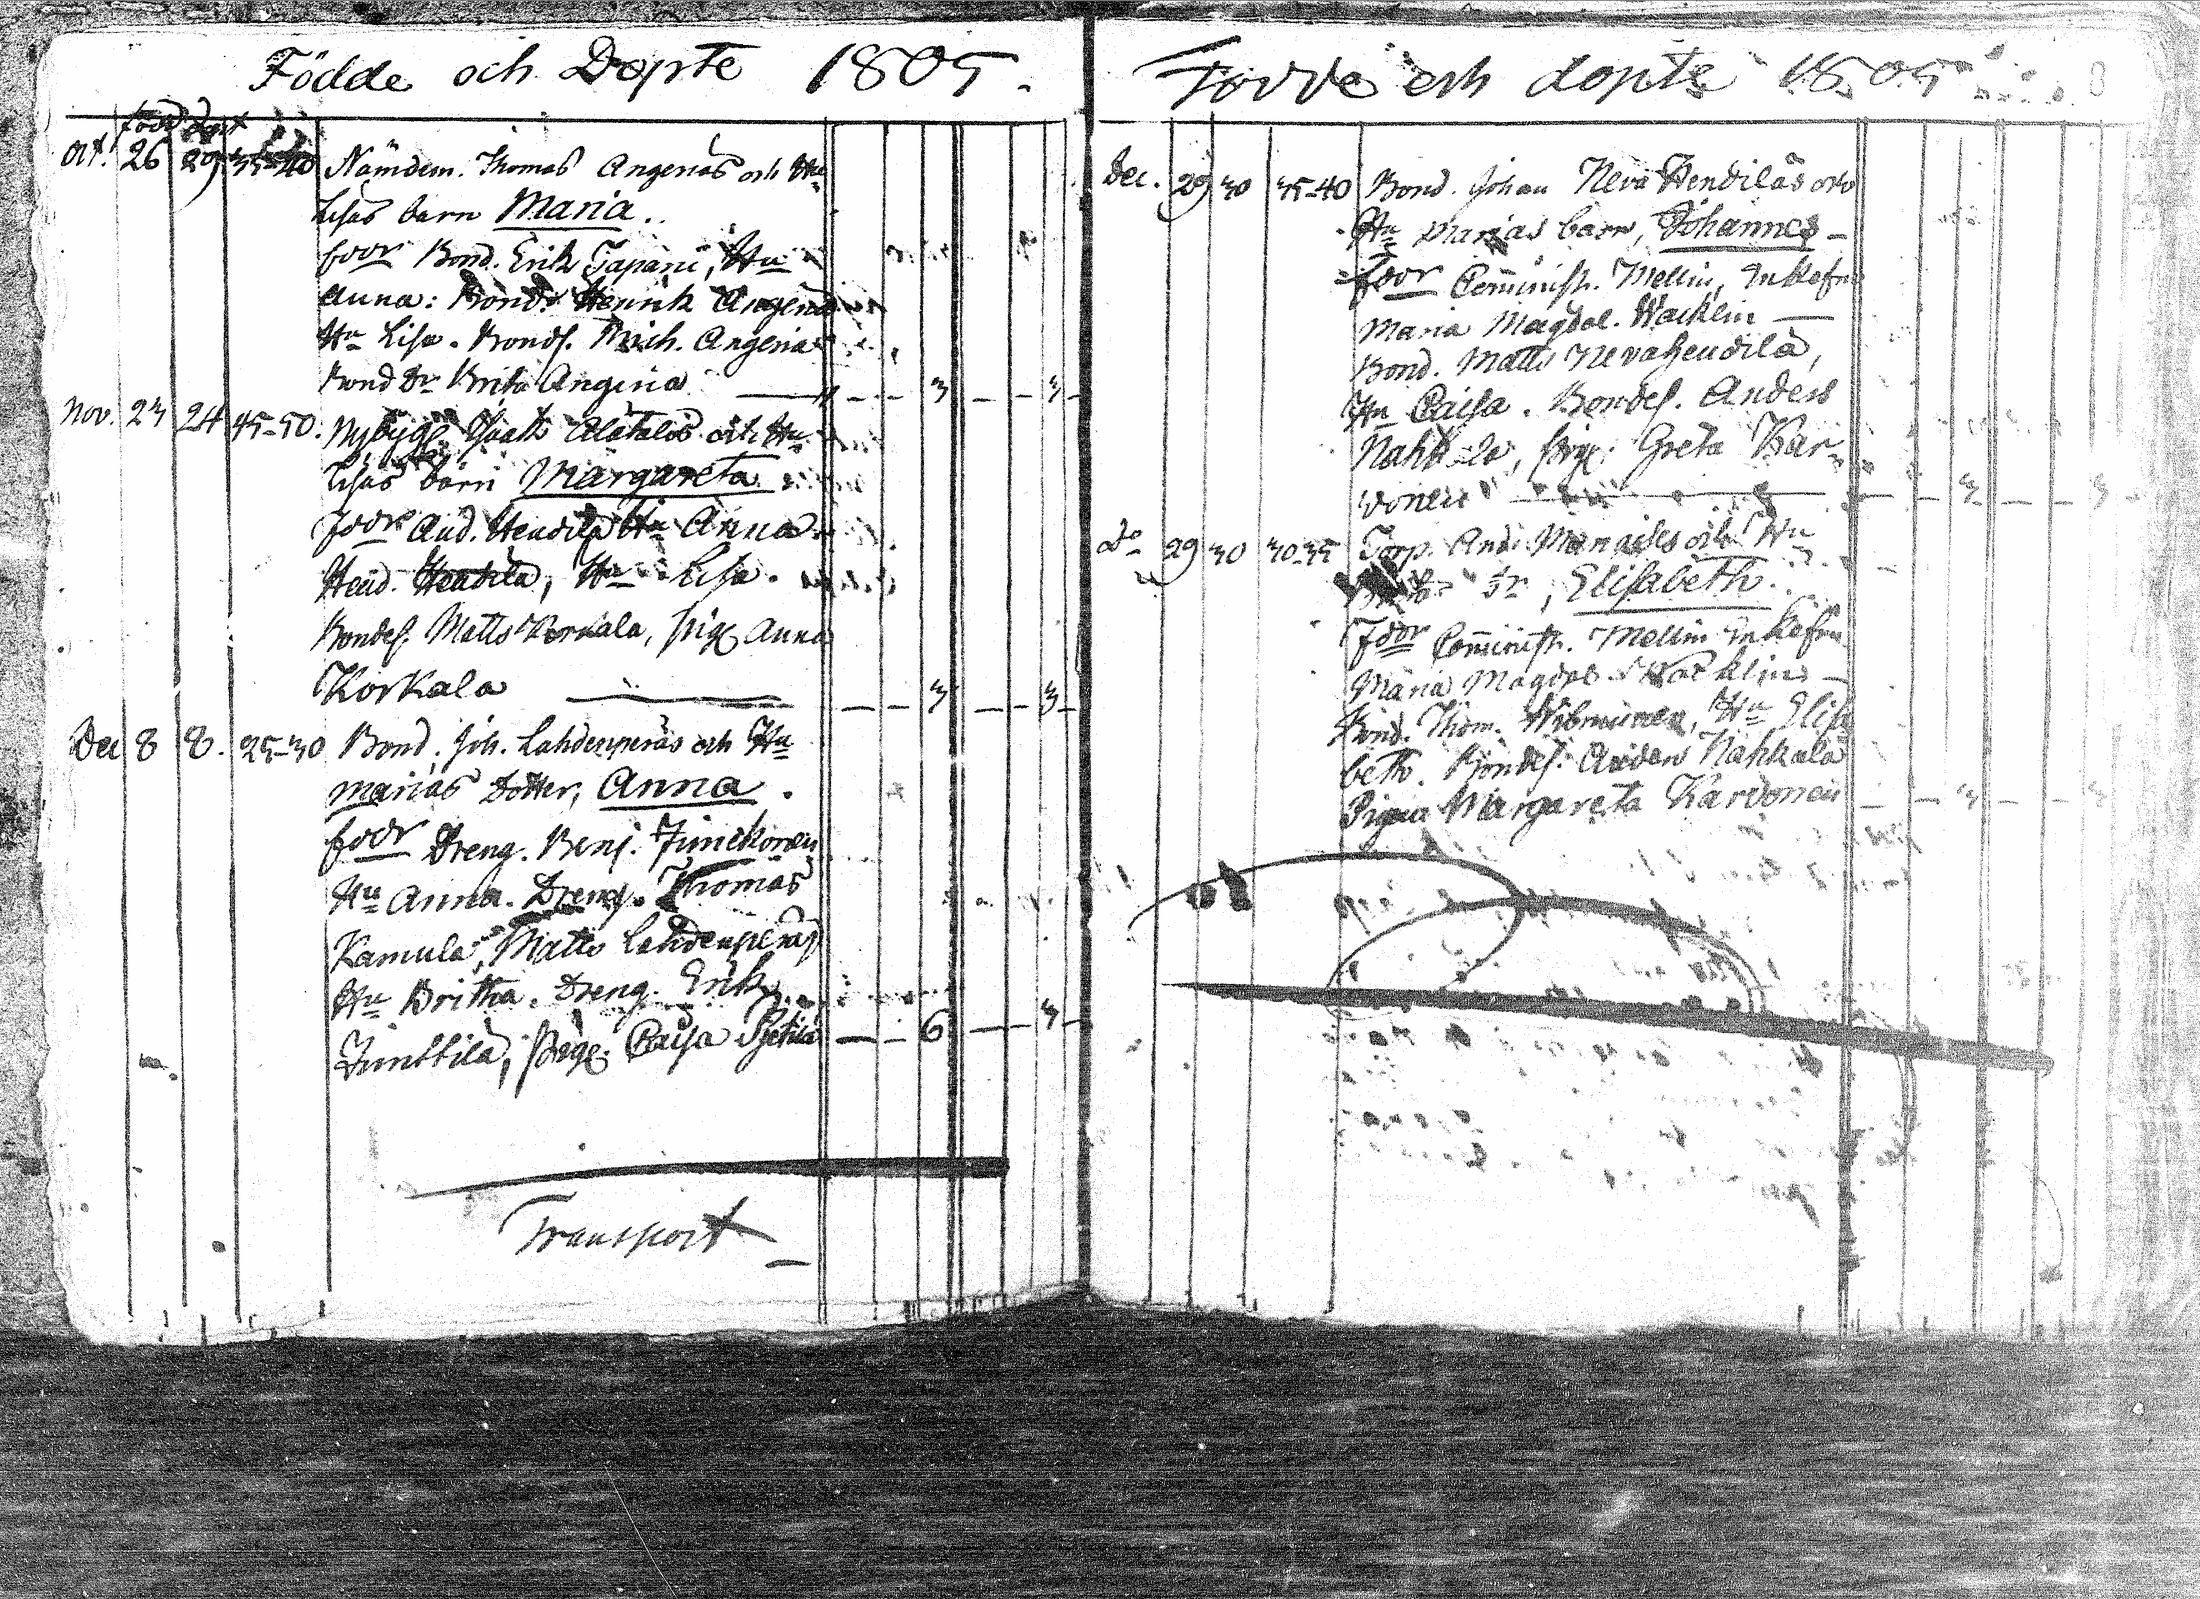 Födde och Döpte 1805.
född döpt
Oct. 26 29 35-40 Nämdem. Thomas Angeriás och Hu
Lisas barn Maria.
foor Bond. Erik Tapani, Hu
Anna: Bond. Henrik Angeria
Hu Lisa. Bondes. Mich. Angeria
Bond Dr Brita Angeria — 3 — 3 —
Nov. 23 24 45-50. Nybygg. Alatalos och Hu
Lisas barn Margareta
foor And. Hendila Hu Anna
Hend. Hendila, Hu Lisa.
Bondes. Matts Korkala, pig. Anna
Korkala — 3 — 3 —
Dec 8 8. 25-30 Bond. Joh. Lahdenperäs och Hu
Marias Dotter, Anna.
foor Dreng. Benj. Junckonen
Hu Anna. Dreng. Thomas
Kamula, Matts Lahdenperä
Hu Britha. Dreng. Erik
Junttila, Pig. Caisa — 6 — 3 —
Transport —
Födde och döpte 1805
Dec. 29 30 35-40 Bond. Johan Neva Hendiläs och
Hu Marias barn, Johannes —
foor Comminist. Mellin, Enkefru
Maria Magdal. Wacklin —
Bond. Matts Nevahendila,
Hu Caisa. Bondes. Anders
Nahkala, pig. Greta Kar-
vonen — 3 — 3
Do 29 30 30-35 Torp. And. och Hu
dr, Elisabeth.
foor Comminist. Mellin Enkefru
Maria Magdal. Wacklin —
Bond. Thom. Hu Elisa
beth. Bondes. Anders Nahkala
Pigan Margareta Karvonen — 3 —